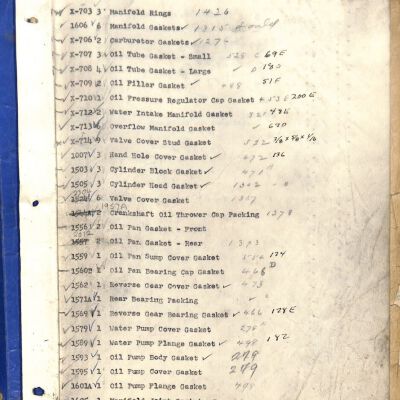 X-703 3 Manifold Rings 1426
1606 6 Manifold Gaskets
X-706 2 Carburetor Gaskets 127
X-707 3 Oil Tube Gasket - Small 69E
X-708 4 Oil Tube Gasket - Large 180
X-709 2 Oil Filler Gasket 51F
X-710 1 Oil Pressure Regulator Cap Gasket 200E
X-712 2 Water Intake Manifold Gasket 48E
X-713 Overflow Manifold Gasket 690
X-714 9 Valve Cover Stud Gasket 532
1007 3 Hand Hole Cover Gasket 136
1503 3 Cylinder Block Gasket
1505 3 Cylinder Head Gasket 1302
6 Valve Cover Gasket 1357
1957A
2 Crankshaft Oil Thrower Cap Packing 1378
1556 2 Oil Pan Gasket - Front
2 Oil Pan Gasket - Rear 1393
1559 1 Oil Pan Sump Cover Gasket 174
1560 1 Oil Pan Bearing Cap Gasket 466 D
1562 1 Reverse Gear Cover Gasket 473
1571A 1 Rear Bearing Packing
1569 1 Reverse Gear Bearing Gasket 466 128E
1579 1 Water Pump Cover Gasket
1589 1 Water Pump Flange Gasket 498 182
1593 1 Oil Pump Body Gasket 279
1595 1 Oil Pump Cover Gasket 279
1601A 1 Oil Pump Flange Gasket 498